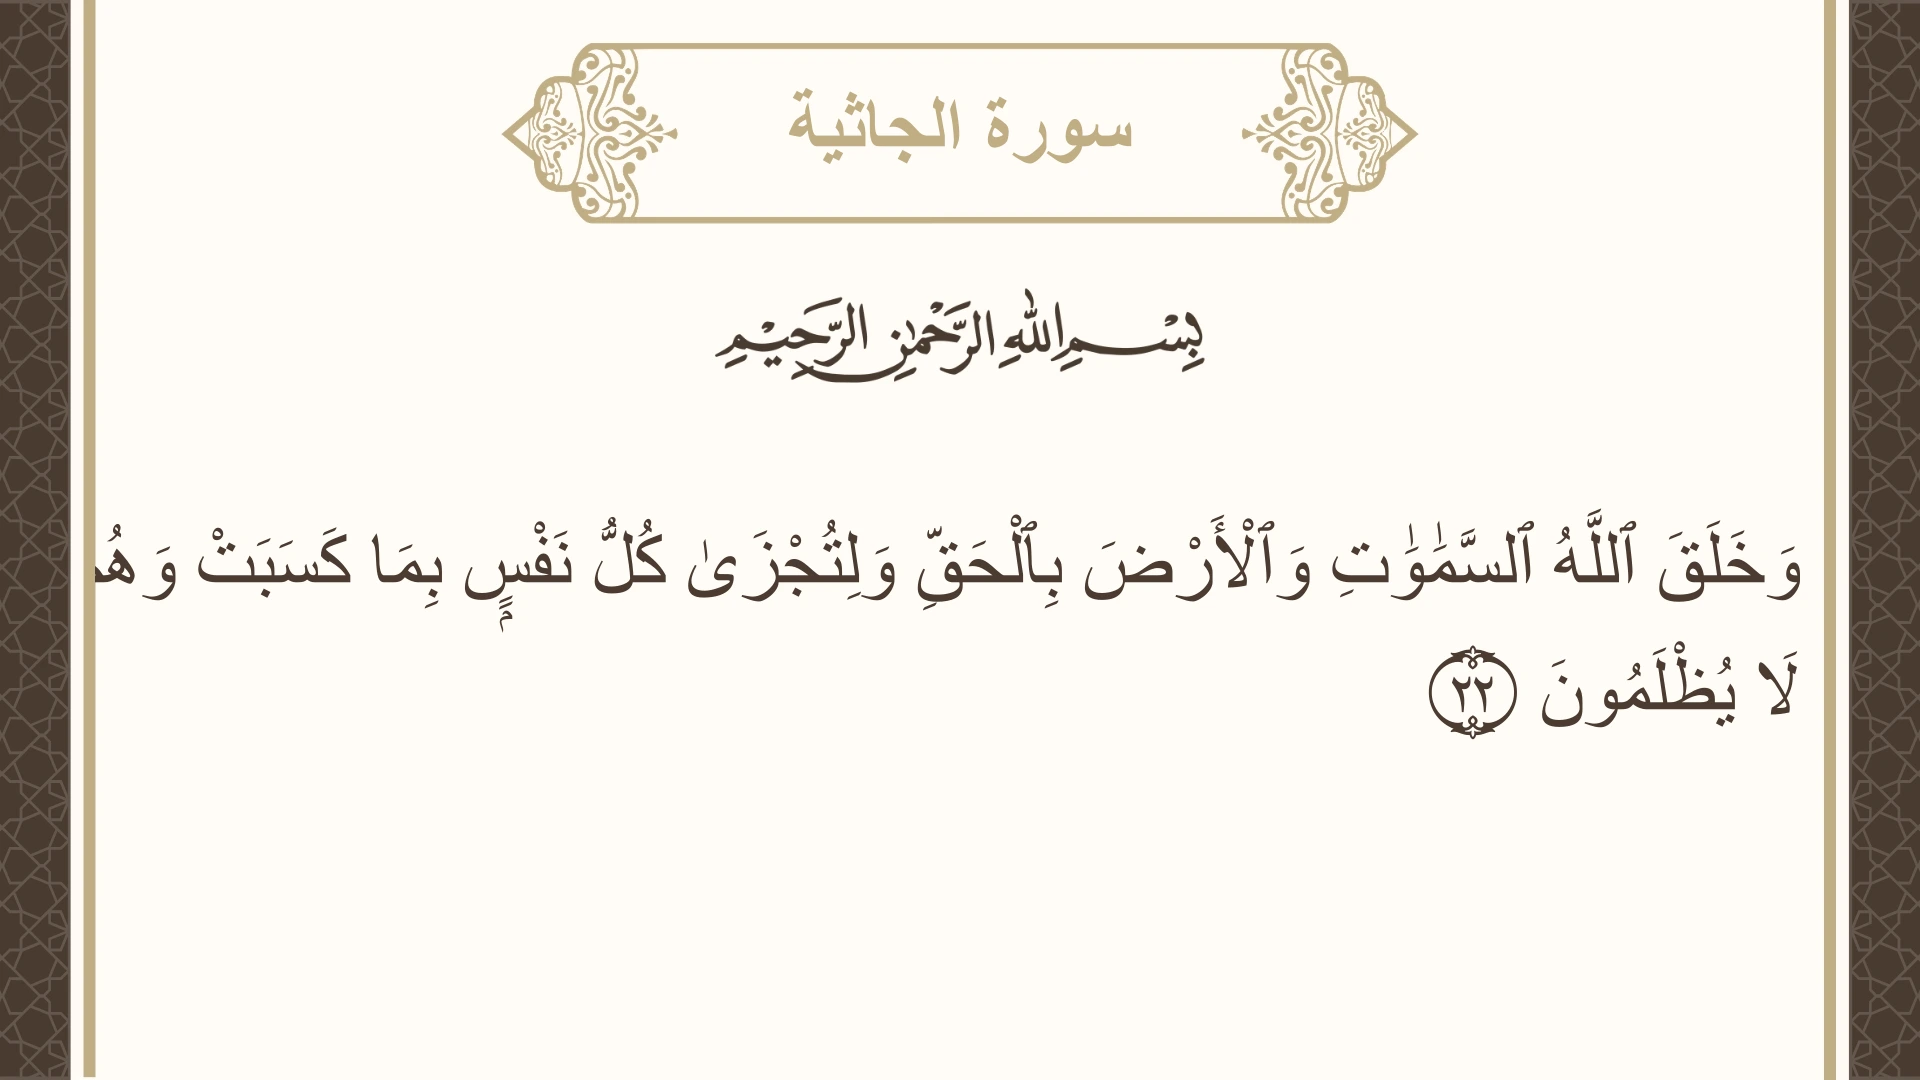 سورة الجاثية
بِسْمِ اللهِ الرَّحْمٰنِ الرَّحِيْمِ
وَخَلَقَ ٱللَّهُ ٱلسَّمَٰوَٰتِ وَٱلْأَرْضَ بِٱلْحَقِّ وَلِتُجْزَىٰ كُلُّ نَفْسٍۭ بِمَا كَسَبَتْ
لَا يُظْلَمُونَ ٢٢